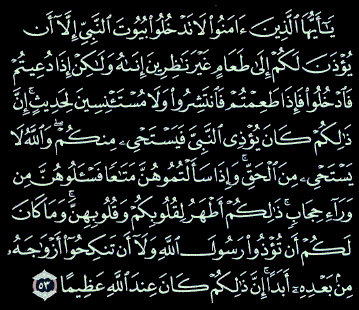 يَـٰٓأَيُّهَا ٱلَّذِينَ ءَامَنُوا۟ لَا تَدْخُلُوا۟ بُيُوتَ ٱلنَّبِىِّ إِلَّآ أَن
يُؤْذَنَ لَكُمْ إِلَىٰ طَعَامٍ غَيْرَ نَـٰظِرِينَ إِنَىٰهُ وَلَـٰكِنْ إِذَا دُعِيتُمْ
فَٱدْخُلُوا۟ فَإِذَا طَعِمْتُمْ فَٱنتَشِرُوا۟ وَلَا مُسْتَـْٔنِسِينَ لِحَدِيثٍ ۚ إِنَّ
ذَٰلِكُمْ كَانَ يُؤْذِى ٱلنَّبِىَّ فَيَسْتَحْىِۦ مِنكُمْ ۖ وَٱللَّهُ لَا
يَسْتَحْىِۦ مِنَ ٱلْحَقِّ ۚ وَإِذَا سَأَلْتُمُوهُنَّ مَتَـٰعًا فَسْـَٔلُوهُنَّ مِن
وَرَآءِ حِجَابٍ ۚ ذَٰلِكُمْ أَطْهَرُ لِقُلُوبِكُمْ وَقُلُوبِهِنَّ ۚ وَمَا كَانَ
لَكُمْ أَن تُؤْذُوا۟ رَسُولَ ٱللَّهِ وَلَآ أَن تَنكِحُوٓا۟ أَزْوَٰجَهُۥ
مِنۢ بَعْدِهِۦٓ أَبَدًا ۚ إِنَّ ذَٰلِكُمْ كَانَ عِندَ ٱللَّهِ عَظِيمًا ٥٣